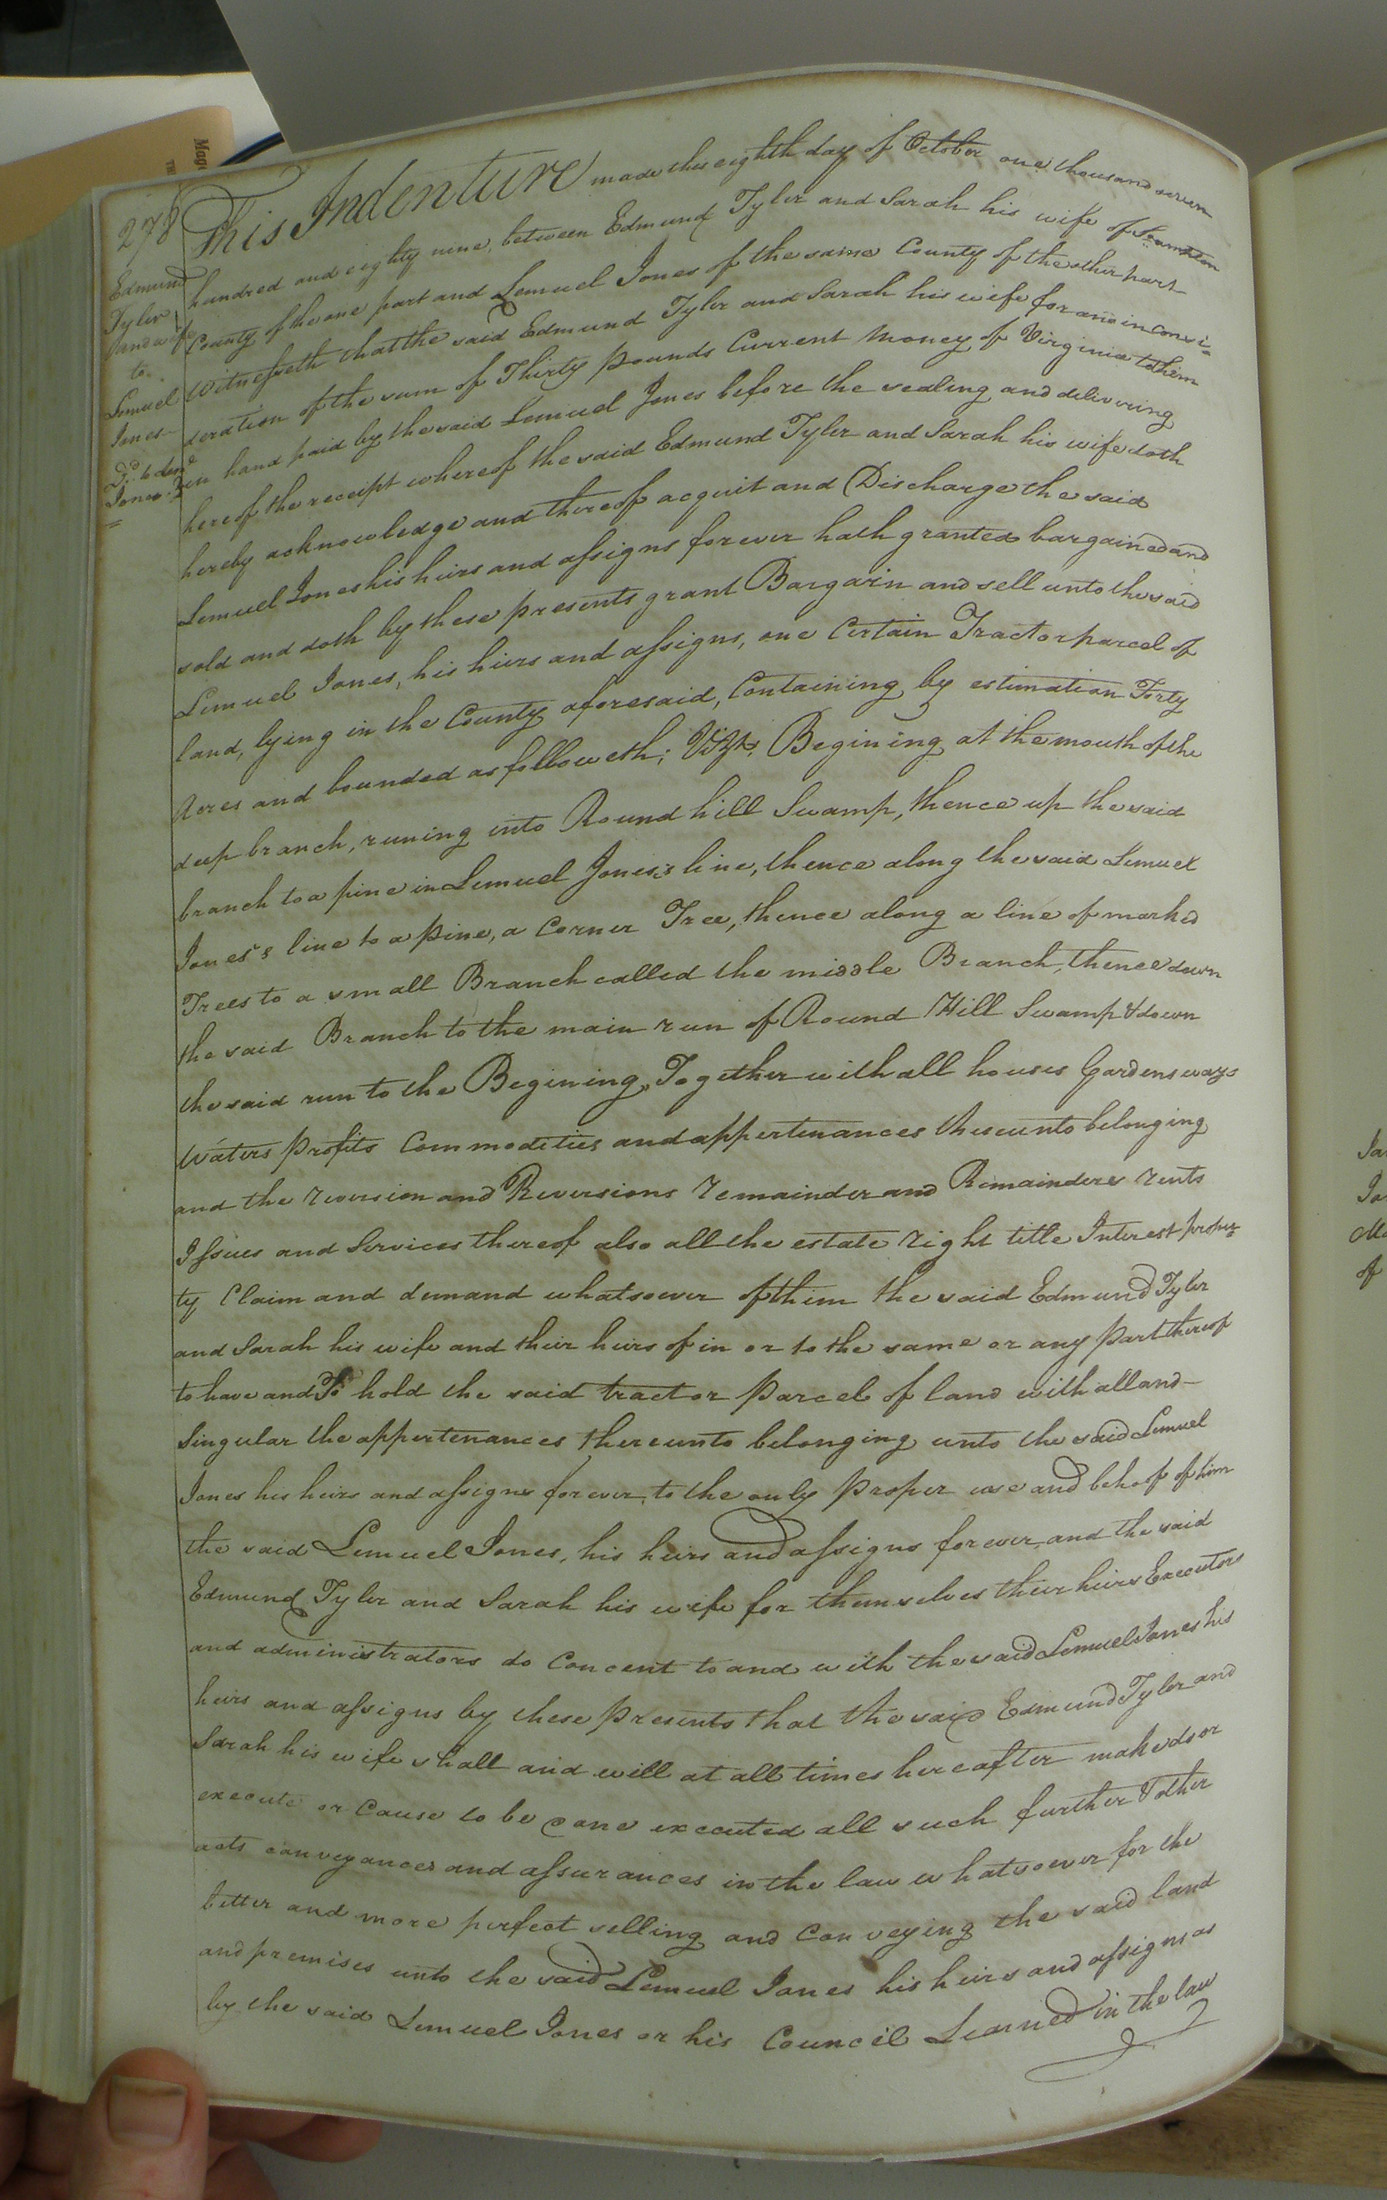 278
Edmund
Tyler
and wife
to
Lemuel
Jones
Dd. to
Jones
This Indenture made this eighth day of October one thousand seven
hundred and eighty nine between Edmund Tyler and Sarah his wife of
County of the one part and Lemuel Jones of the same County of the other part
Witnesseth that the said Edmund Tyler and Sarah his wife for and in consi=
deration of the sum of Thirty pounds Current Money of Virginia to them
in hand paid by the said Lemuel Jones before the sealing and delivering
hereof the receipt whereof the said Edmund Tyler and Sarah his wife doth
hereby acknowledge and thereof acquit and Discharge the said
Lemuel Jones his heirs and assigns forever hath granted bargained and
sold and doth by these presents grant Bargain and sell unto the said
Lemuel Jones, his heirs and assigns, one Certain Tract or parcel of
land, lying in the County aforesaid, Containing by estimation Forty
Acres and bounded as followeth; Vizt. Begining at the mouth of the
deep branch, runing into Round hill Swamp, thence up the said
branch to a pine in Lemuel Jones's line, thence along the said Lemuel
Jones's line to a pine, a Corner Tree, thence along a line of marked
Trees to a small Branch called the middle Branch, thence down
the said Branch to the main run of Round Hill Swamp & down
the said run to the Begining, Together with all houses Gardens ways
Waters Profits Commodities and appertenances thereunto belonging
and the reversion and Reversions remainder and Remainders rents
Issues and Services thereof also all the estate right title Interest proper=
ty Claim and demand whatsoever of them the said Edmund Tyler
and Sarah his wife and their heirs of in or to the same or any Part thereof
to have and To hold the said tract or Parcel of land with all and
Singular the appertenances thereunto belonging unto the said Lemuel
Jones his heirs and assigns forever, to the only Proper use and behoof of him
the said Lemuel Jones, his heirs and assigns forever, and the said
Edmund Tyler and Sarah his wife for themselves their heirs Executors
and administrators do Concent to and with the said Lemuel Jones his
heirs and assigns by these Presents that the said Edmund Tyler and
Sarah his wife shall and will at all times hereafter make do or
execute or Cause to be done executed all such further & other
acts conveyances and assurances in the law whatsoever for the
better and more perfect selling and Conveying the said land
and premises unto the said Lemuel Jones his heirs and assigns as
by the said Lemuel Jones or his Council Learned in the law